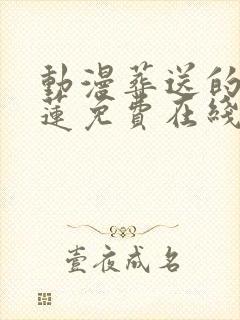 動漫葬送的
蓮免費在綫
壹夜成名